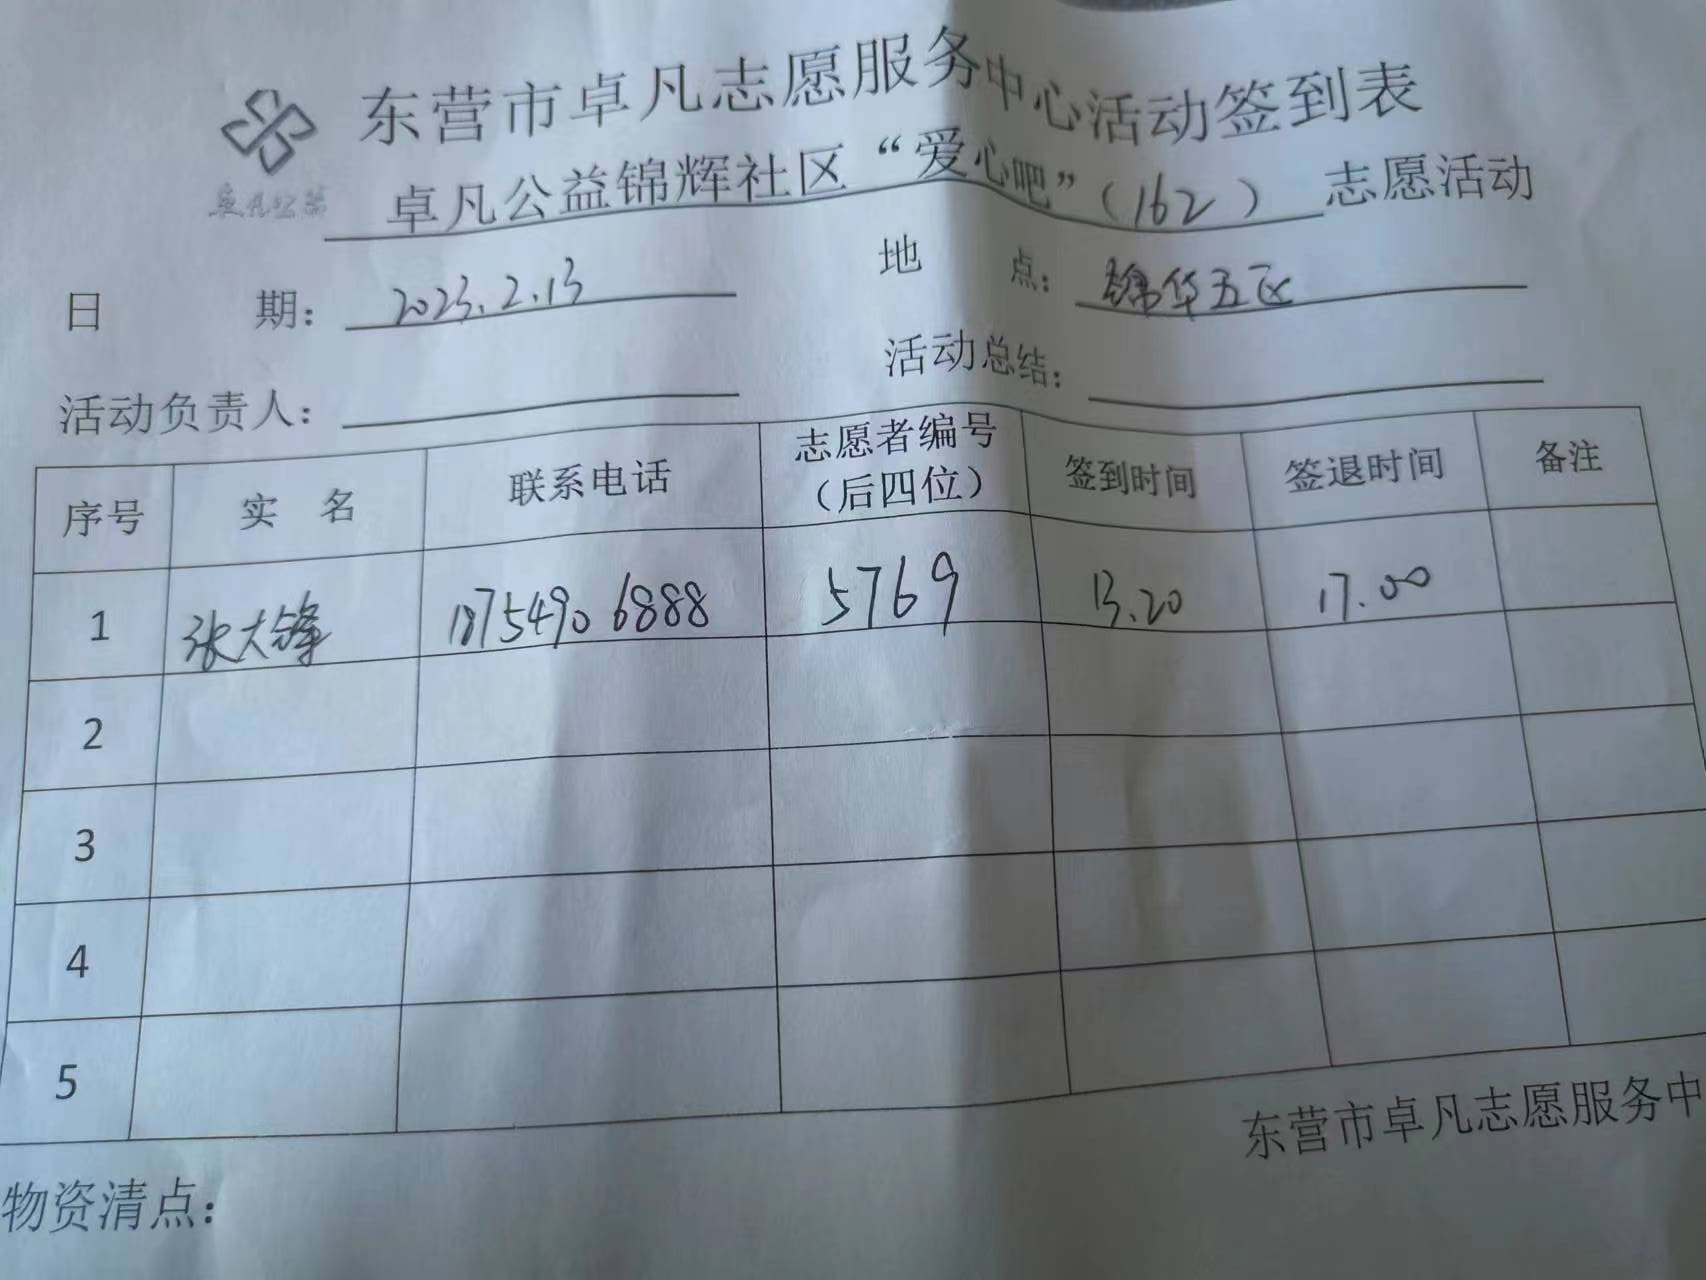 东营市卓凡志愿服务中心活动签到表
卓凡公益
卓凡公益锦辉社区“爱心吧”（162）志愿活动
日 期：2023.2.13 地 点：锦华五区
活动负责人： 活动总结：
序号 实 名 联系电话 志愿者编号（后四位） 签到时间 签退时间 备注
1 张大锋 18754906888 5769 13.20 17.00
2
3
4
5
东营市卓凡志愿服务中
物资清点：